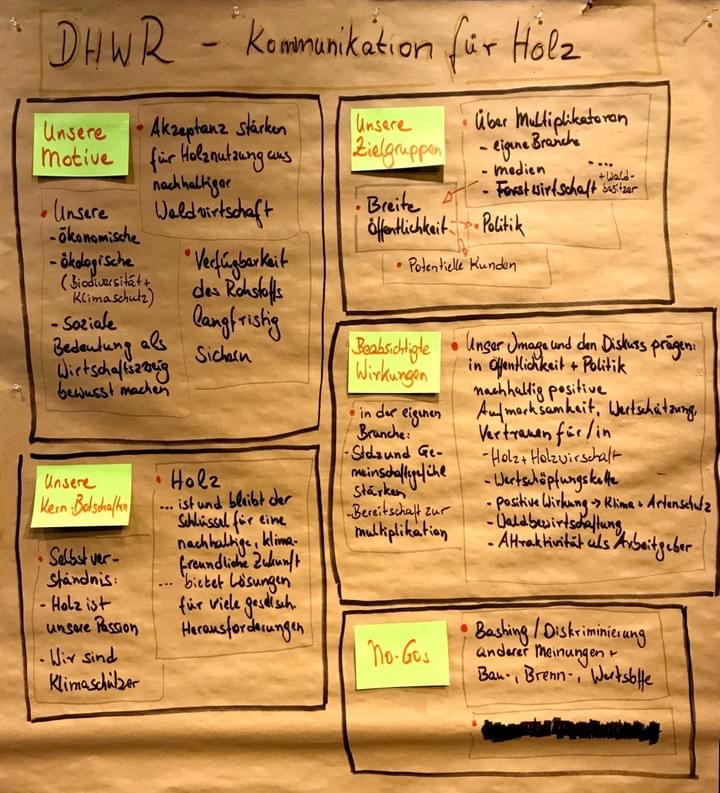 DHWR - Kommunikation für Holz
Unsere
Motive
• Akzeptanz stärken
für Holznutzung aus
nachhaltiger
Waldwirtschaft
• Unsere
- ökonomische
- ökologische
(Biodiversität +
Klimaschutz)
- Soziale
Bedeutung als
Wirtschaftszweig
bewusst machen
• Verfügbarkeit
des Rohstoffs
langfristig
sichern
Unsere
Zielgruppen
• Über Multiplikatoren
- eigene Branche
- medien
- ...
- Forstwirtschaft + Wald-
besitzer
• Breite
Öffentlichkeit
• Politik
• Potentielle Kunden
Beabsichtigte
Wirkungen
• Unser Image und den Diskurs prägen:
in Öffentlichkeit + Politik
nachhaltig positive
Aufmerksamkeit, Wertschätzung,
Vertrauen für/in
- Holz + Holzwirschaft
- Wertschöpfungskette
- positive Wirkung → Klima + Artenschutz
- Waldbewirtschaftung
- Attraktivität als Arbeitgeber
• in der eigenen
Branche:
- Stolz und Ge-
meinschaftsgefühle
stärken
- Bereitschaft zur
multiplikation
Unsere
Kern-Botschaften
• Holz
... ist und bleibt der
Schlüssel für eine
nachhaltige, klima-
freundliche Zukunft
... bietet Lösungen
für viele gesellsch.
Herausforderungen
• Selbstver-
ständnis:
- Holz ist
unsere Passion
- Wir sind
Klimaschützer
No-Gos
• Bashing / Diskriminierung
anderer Meinungen +
Bau-, Brenn-, Wertstoffe